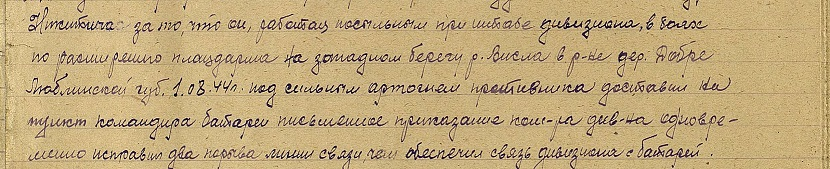 за то, что он, работая посыльным при штабе дивизиона, в боях
по расширению плацдарма на западном берегу р. Висла в р-не дер. Добре
Люблинской губ. 1.08.44г. под сильным артогнем противника доставил на
пункт командира батареи письменное приказание ком-ра див-на одновре-
менно исправил два порыва линии связи, чем обеспечил связь дивизиона с батареей.